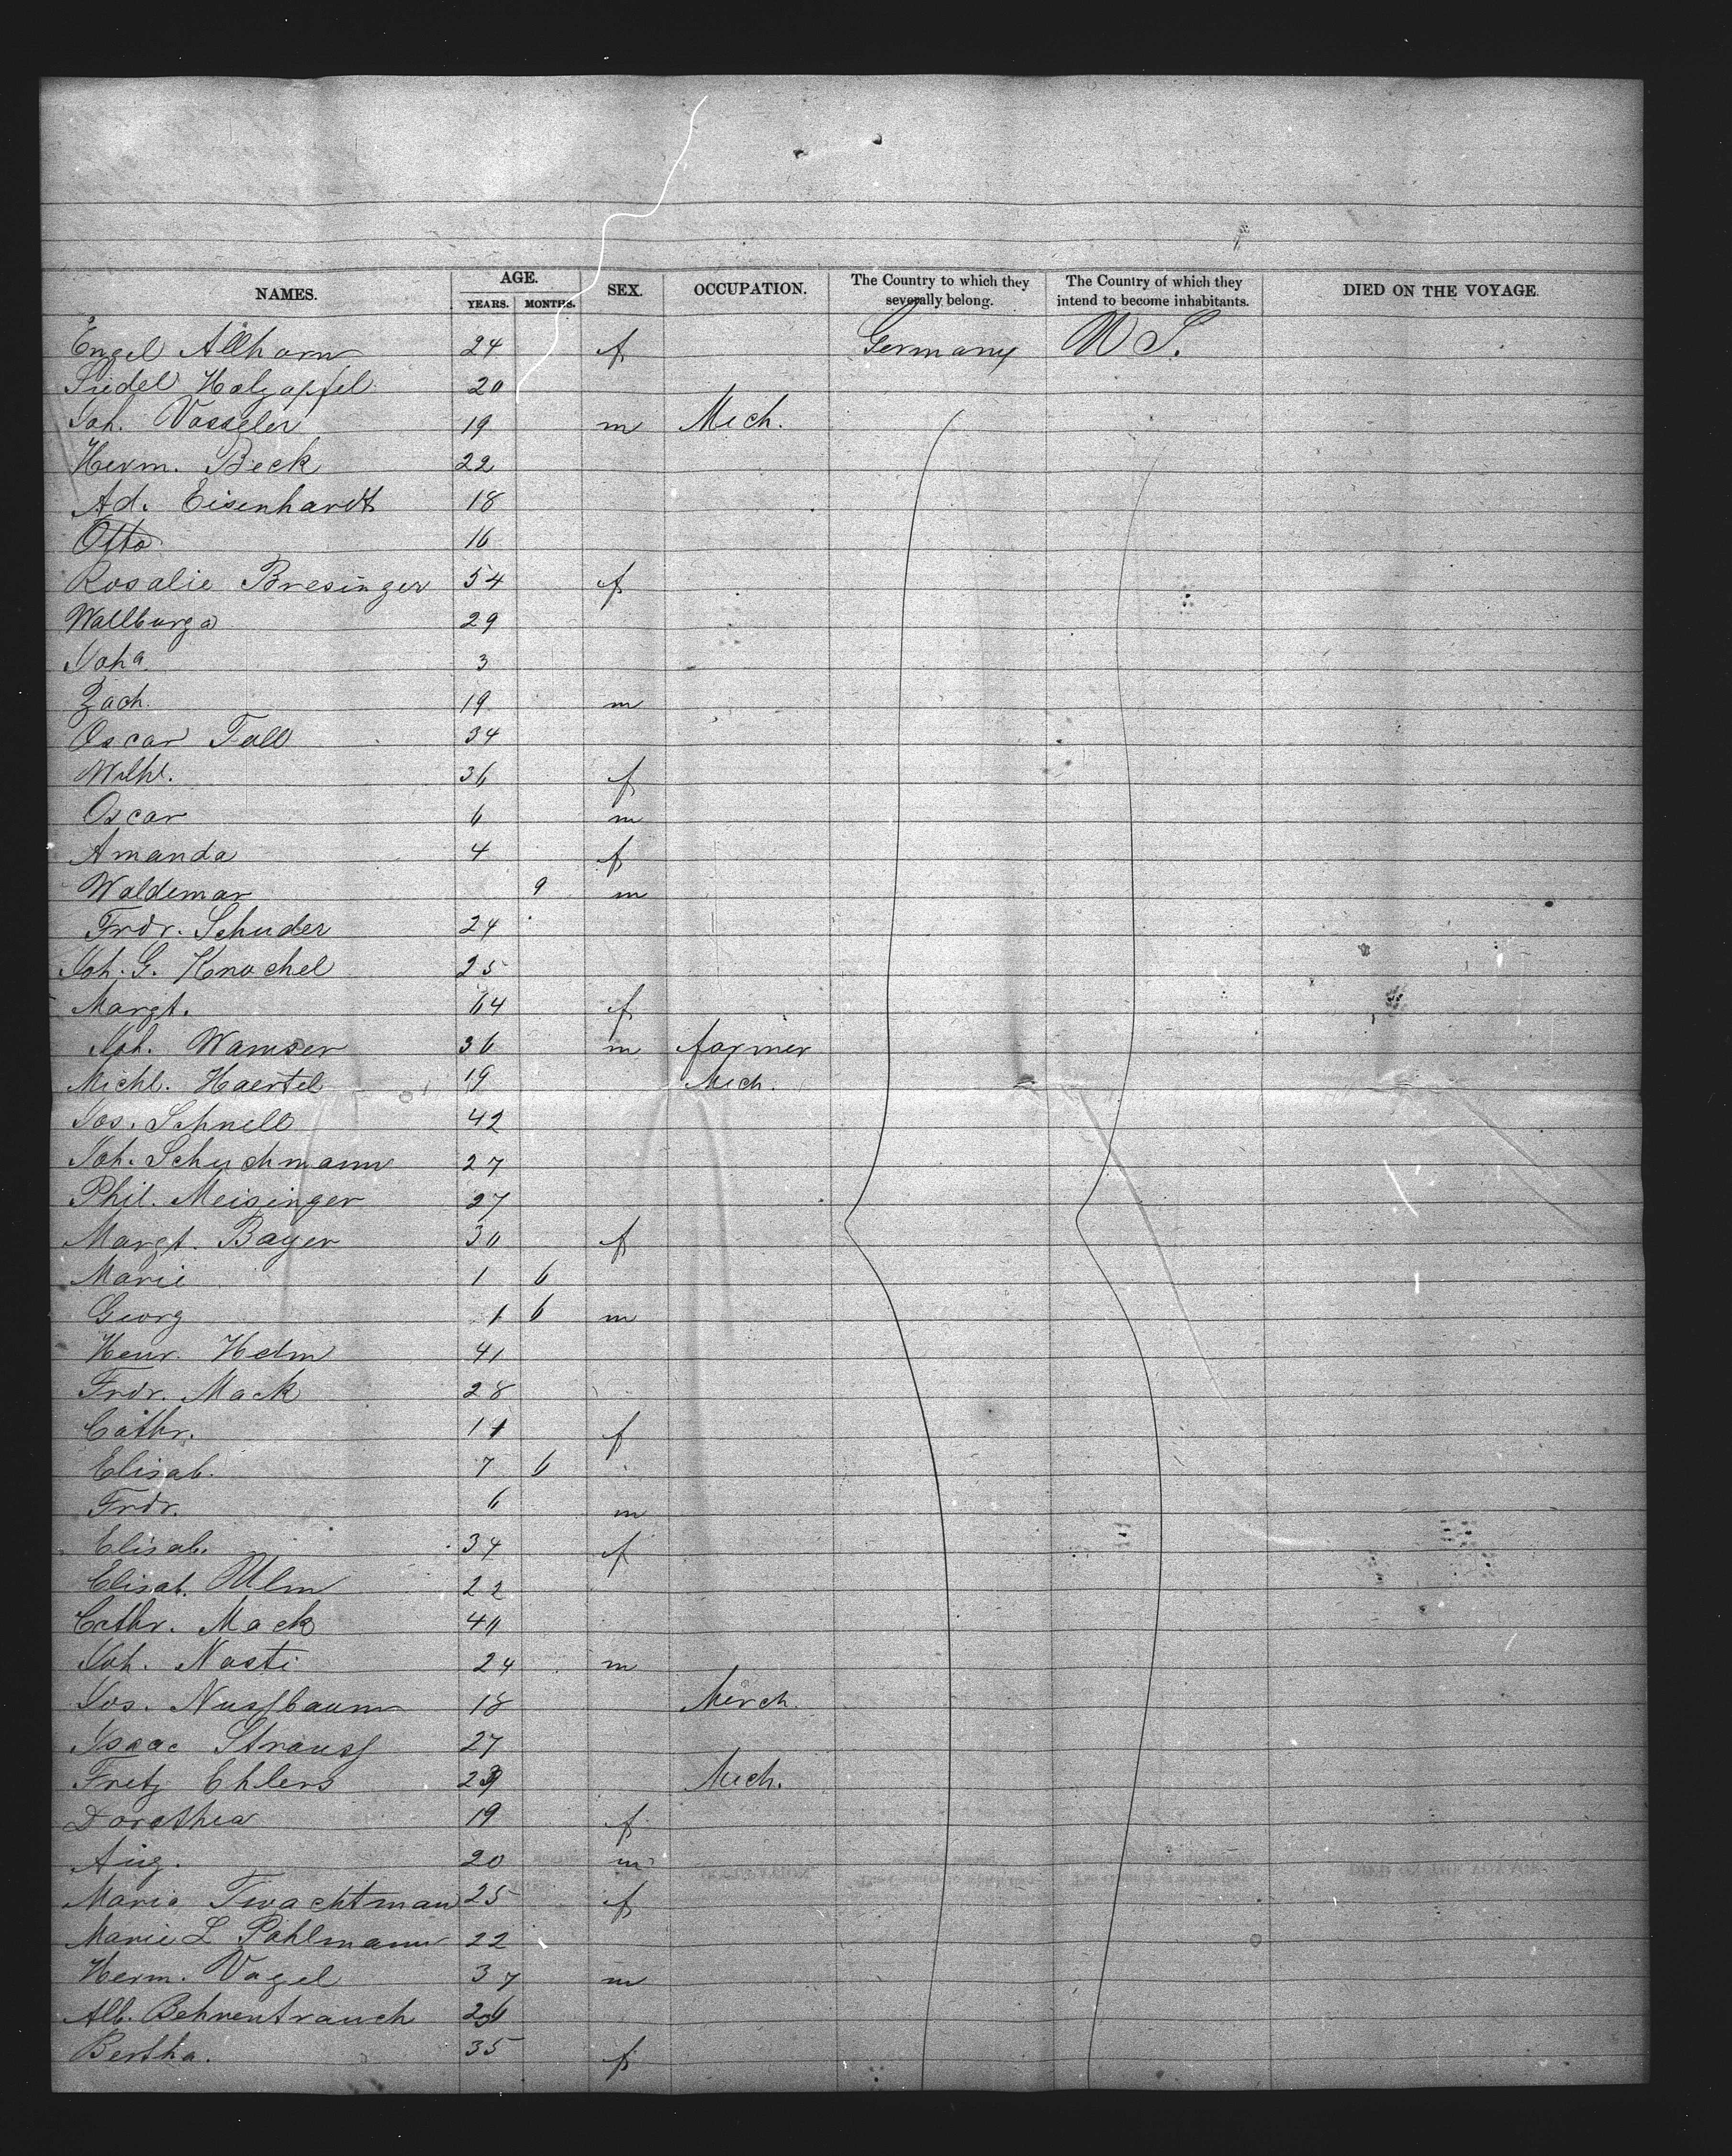 NAMES. AGE. YEARS. MONTHS. SEX. OCCUPATION. The Country to which they severally belong. The Country of which they intend to become inhabitants. DIED ON THE VOYAGE.
Engel Allhorn 24 f Germany U S.
Siedel Holzapfel 20
Joh. Vosseler 19 m Mech.
Herm. Beck 22
Ad. Eisenhardt 18
Otto 16
Rosalie Bresinger 54 f
Wallburga 29
Joha 3
Zach. 19 m
Oscar Toll 34
Wilhl. 36 f
Oscar 6 m
Amanda 4 f
Waldemar 9 m
Frdr. Schuder 24
Joh. G. Knochel 25
Margt. 64 f
Joh. Wamser 36 m farmer
Michl. Haertel 19 Mech.
Jos. Schnell 42
Joh. Schuchmann 27
Phil. Meisinger 27
Margt. Bayer 30 f
Marie 1 6
Georg 1 6 m
Henr. Helm 41
Frdr. Mack 28
Cathr. 11 f
Elisab. 7 6
Frdr. 6 m
Elisab. 34 f
Elisab. Ulm 22
Cathr. Mack 40
Joh. Nosti 24 m
Jos. Nussbaum 18 Merch.
Isaac Strauss 27
Fretz Ehlers 29 Mech.
Dorothea 19 f
Aug. 20 m
Maria Twachtman 25 f
Marie L Pohlmann 22
Herm. Vogel 37 m
Alb. Behrentrauch 26
Bertha. 35 f